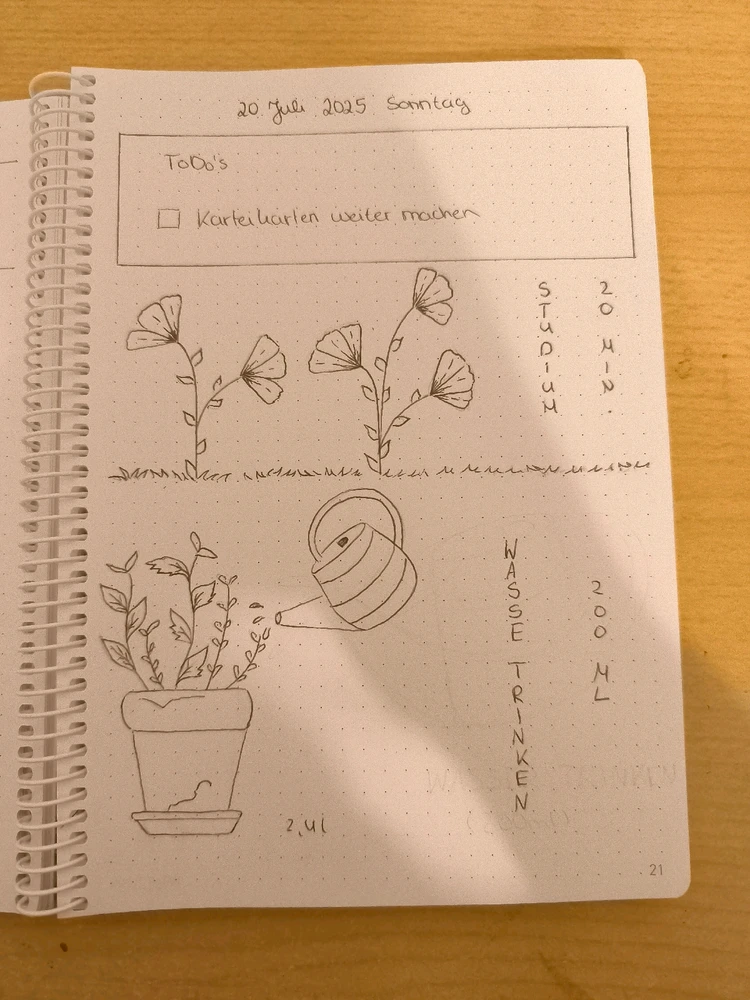 20 Juli 2025 Sonntag
ToDo's
Karteikarten weiter machen
STUDIUM
20 MIN.
WASSE TRINKEN
200 ML
2,4l
21